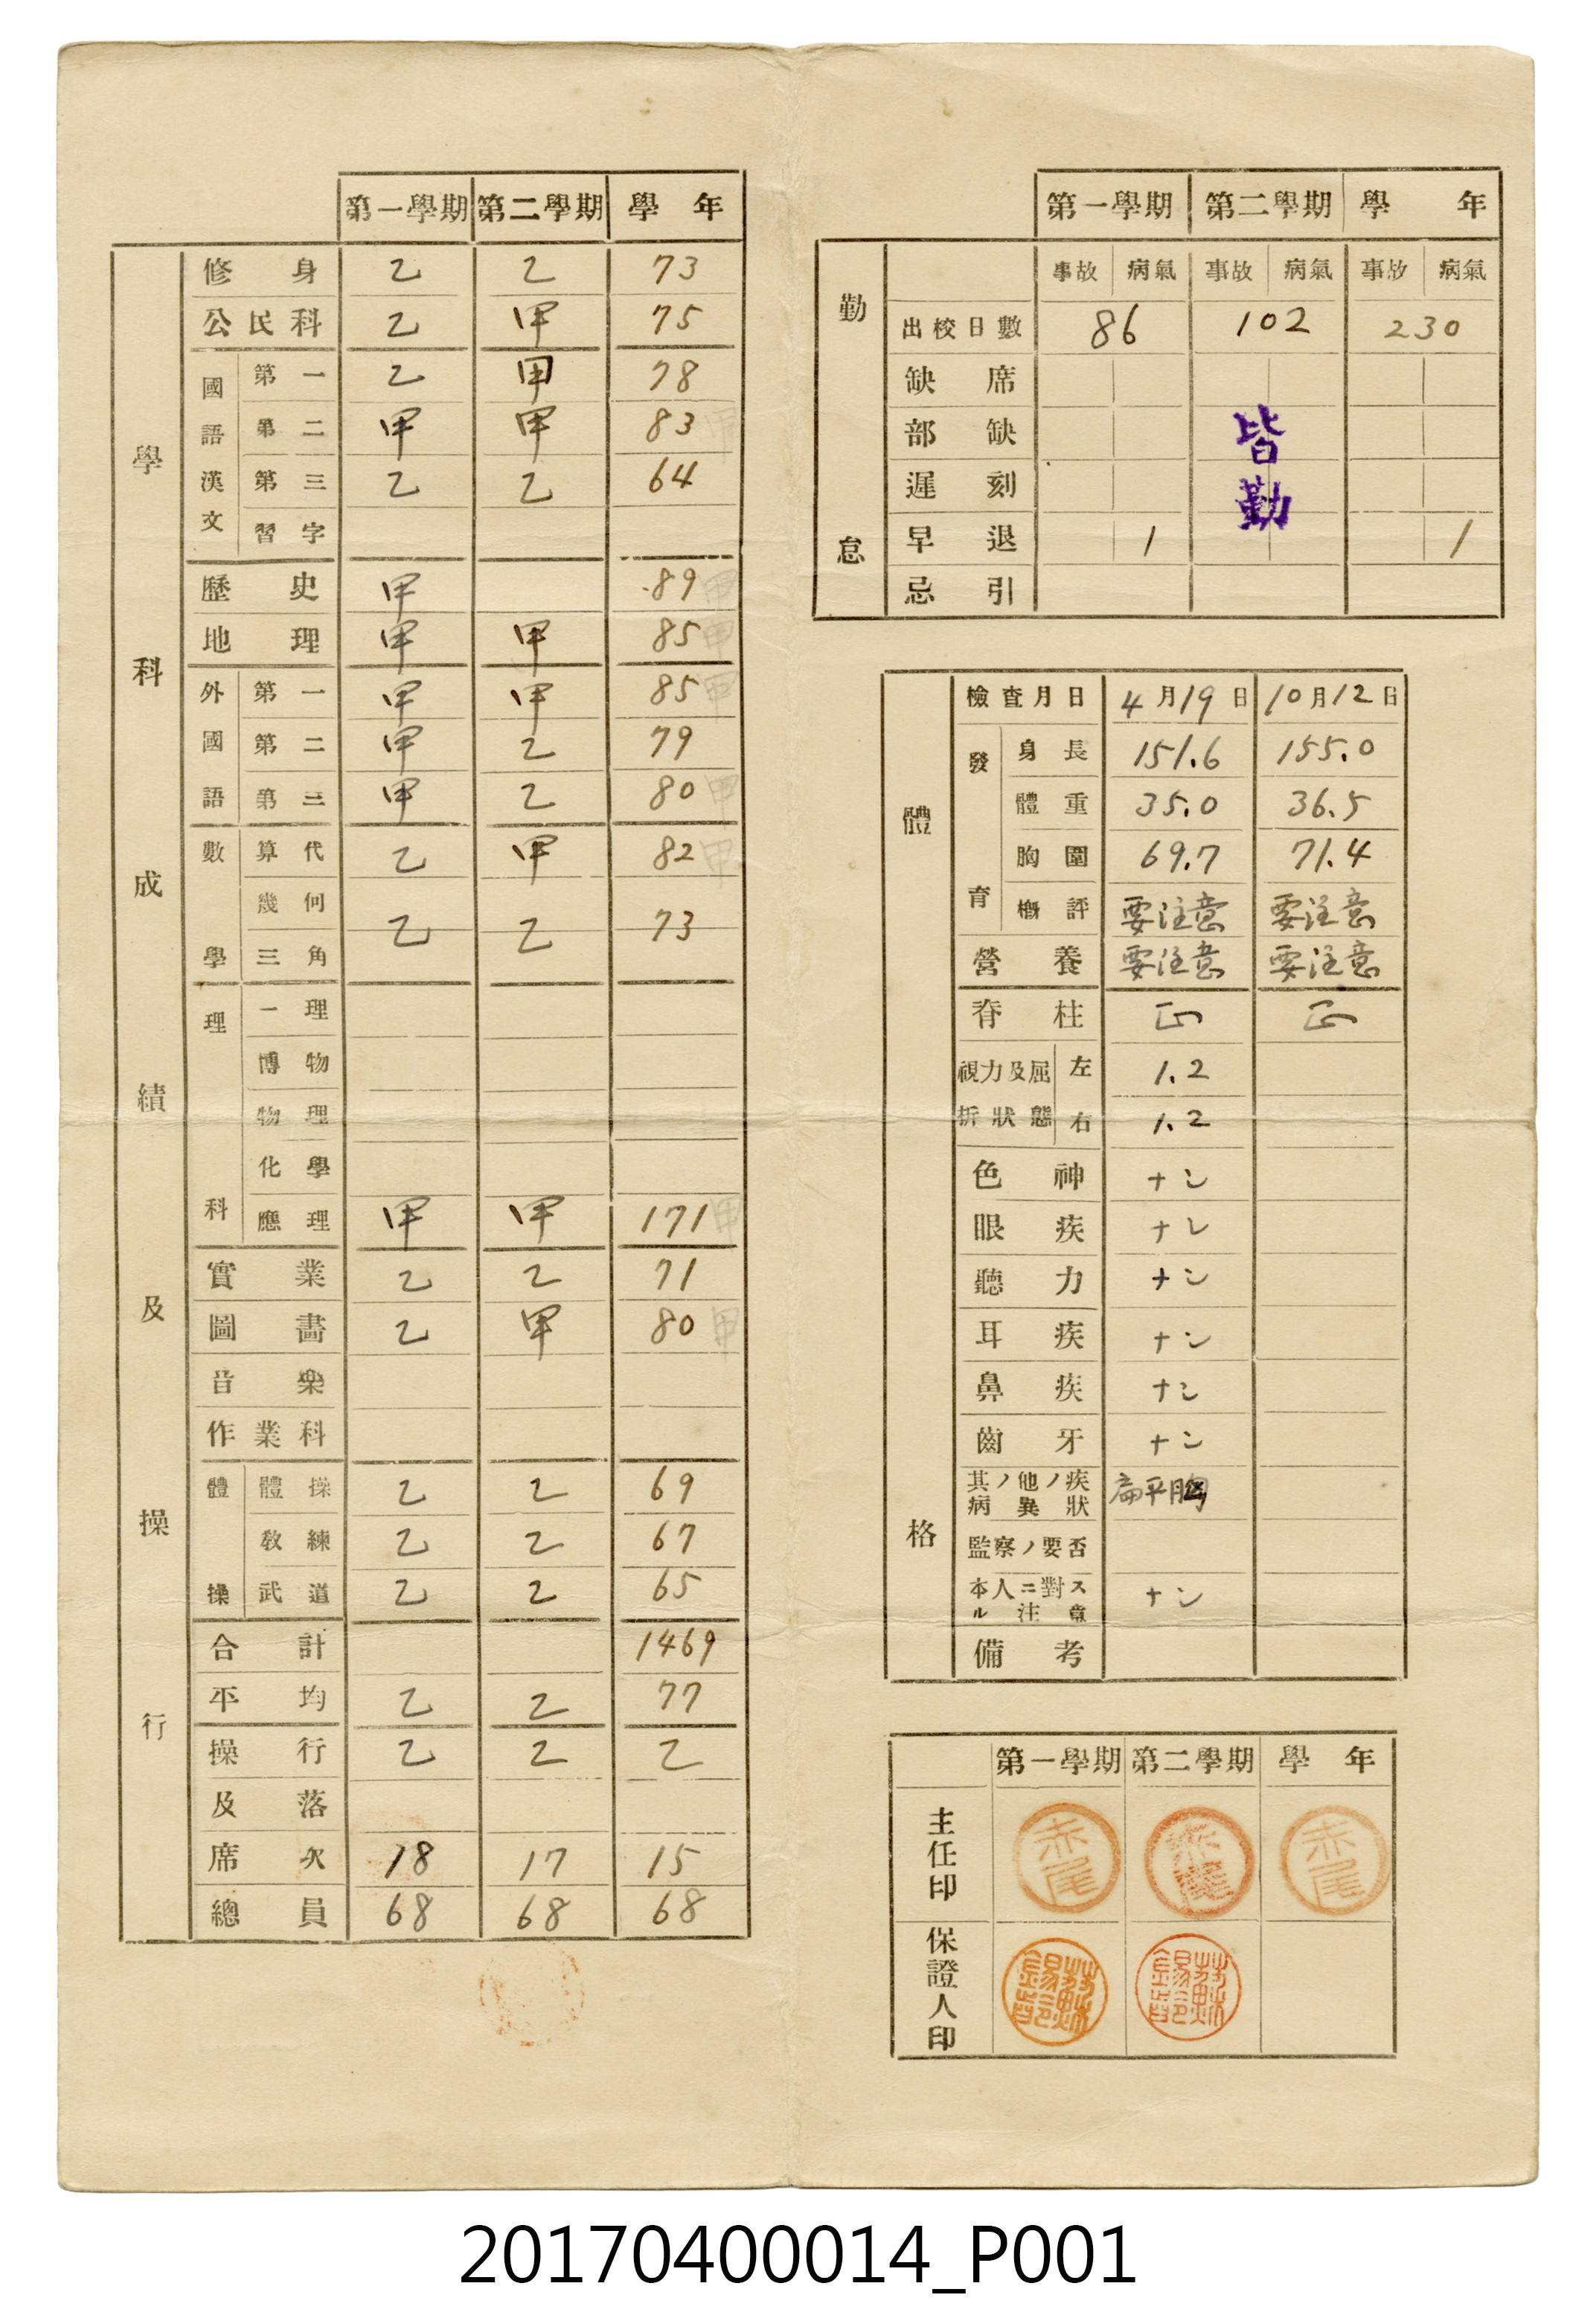 第一學期 第二學期 學年
學科成績及操行
修身 乙 乙 73
公民科 乙 甲 75
國語漢文 第一 乙 甲 78
第二 甲 甲 83 甲
第三 乙 乙 64
習字
歷史 甲 89 甲
地理 甲 甲 85 甲
外國語 第一 甲 甲 85 甲
第二 甲 乙 79
第三 甲 乙 80 甲
數學 算代 乙 甲 82 甲
幾何 乙 乙 73
三角
理科 一理
博物
物理
化學
應理 甲 甲 171 甲
實業 乙 乙 71
圖畵 乙 甲 80 甲
音樂
作業科
體操 體操 乙 乙 69
教練 乙 乙 67
武道 乙 乙 65
合計 1469
平均 乙 乙 77
操行 乙 乙 乙
及落
席次 18 17 15
總員 68 68 68
第一學期 第二學期 學年
勤怠
事故 病氣 事故 病氣 事故 病氣
出校日數 86 102 230
缺席
部缺
遲刻
早退 1 1
忌引
皆勤
體格
檢查月日 4月19日 10月12日
發育 身長 151.6 155.0
體重 35.0 36.5
胸圍 69.7 71.4
概評 要注意 要注意
營養 要注意 要注意
脊柱 正 正
視力及屈折狀態 左 1.2
右 1.2
色神 ナシ
眼疾 ナシ
聽力 ナシ
耳疾 ナシ
鼻疾 ナシ
齒牙 ナシ
其ノ他ノ疾病異狀 扁平胸
監察ノ要否
本人ニ對スル注意 ナシ
備考
第一學期 第二學期 學年
主任印 赤尾 赤尾 赤尾
保證人印
20170400014_P001